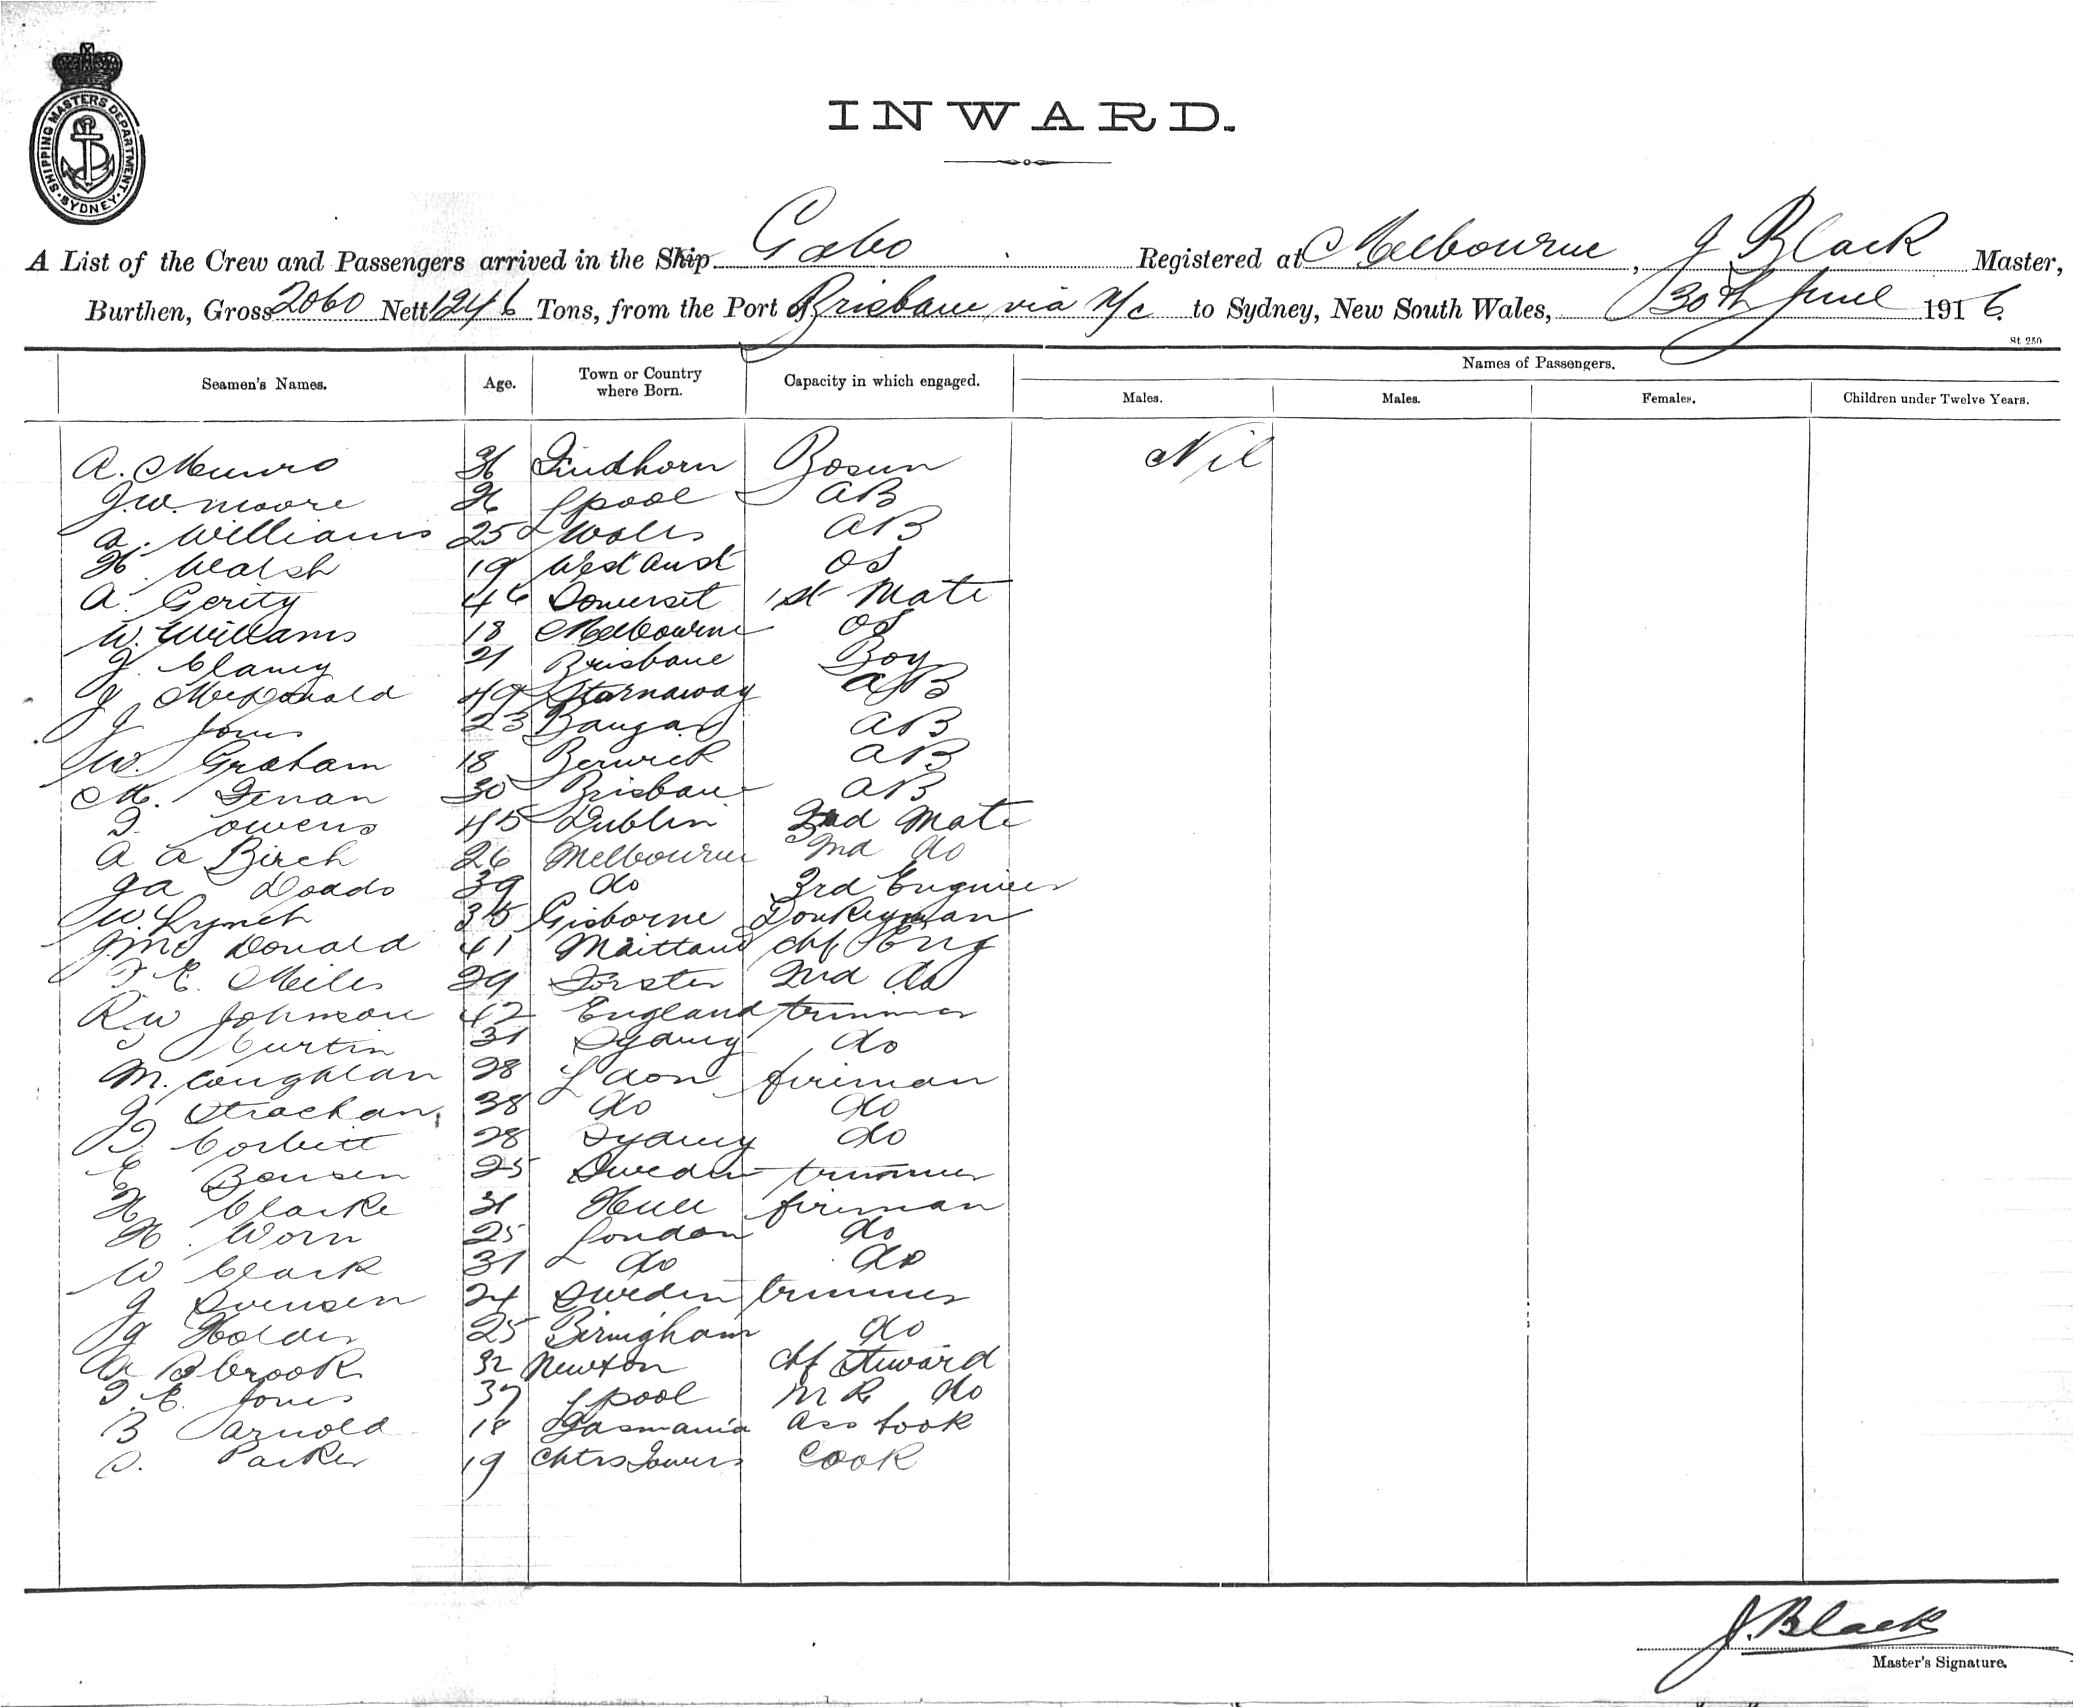 SHIPPING MASTERS DEPARTMENT. SYDNEY.
INWARD.
A List of the Crew and Passengers arrived in the Ship Gabo Registered at Melbourne, J Black Master,
Burthen, Gross 2060 Nett 1246 Tons, from the Port of Brisbane via N/c to Sydney, New South Wales, 30th June 1916.
St 250
Seamen's Names. Age. Town or Country where Born. Capacity in which engaged. Names of Passengers.
Males. Males. Females. Children under Twelve Years.
A. Munro 36 Findhorn Bosun Nil
J.W. Moore 26 Lpool AB
A. Williams 25 Wales AB
H. Walsh 19 West Aust OS
A. Gerity 46 Somerset 1st Mate
W. Williams 18 Melbourne OS
J. Clancy 21 Brisbane Boy
J McDonald 49 Stornaway AB
J Jones 23 Bangor AB
W. Graham 18 Berwick AB
M. Tenan 30 Brisbane AB
T. Owens 45 Dublin 2nd Mate
A A Birch 26 Melbourne 3rd do
J A Dodds 39 do 3rd Engineer
W. Lynch 35 Gisborne Donkeyman
J. Mc Donald 41 Maittand chf Eng
F. E. Miles 29 Forster 2nd do
R W Johnson 42 England trimmer
Curtin 31 Sydney do
M. Coughlan 28 Ldon fireman
J Strachan 38 do do
T. Corbett 28 Sydney do
E Bensen 25 Sweden trimmer
H Clarke 31 Hull fireman
H. Worn 25 London do
W Clark 31 do do
J Svensen 24 Sweden trimmer
J Holder 25 Birmigham do
B Crook 32 Newton chf Steward
T. E. Jones 37 Lpool M R do
B Arnold 18 Tasmania Ass Cook
S. Parker 19 Chtrs Towers Cook
J. Black
Master's Signature.